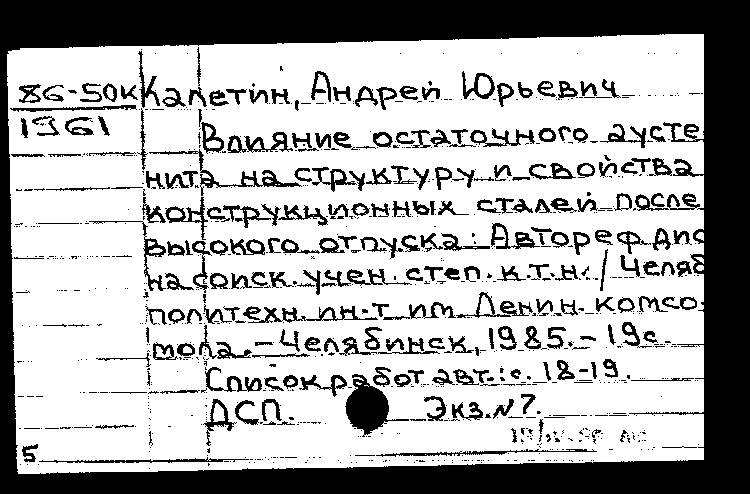 86-50к Калетин, Андрей Юрьевич
1961
Влияние остаточного аусте
нита на структуру и свойства
конструкционных сталей после
высокого отпуска: Автореф. дис
на соиск. учен. степ. к.т.н. / Челяб
политехн. ин-т им. Ленин. комсо-
мола. – Челябинск, 1985. – 19с.
Список работ авт.: с. 18-19.
ДСП. Экз. №7.
5